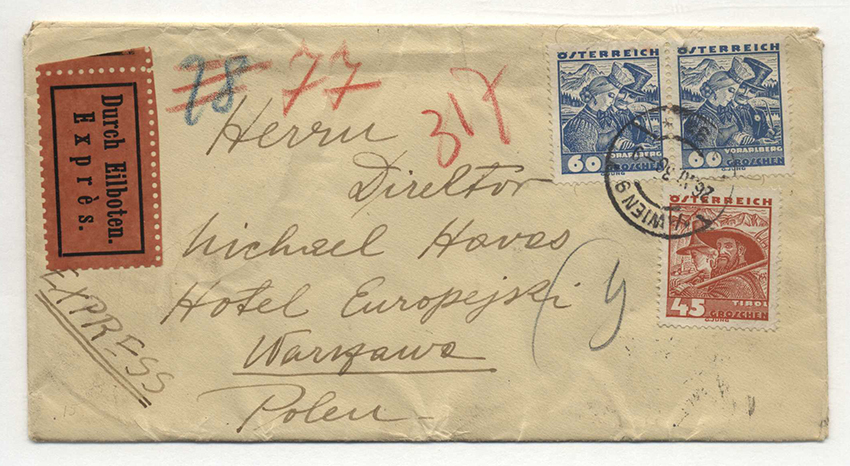 Durch Eilboten.
Exprès.
78 77
317
EXPRESS
Herrn
Direktor
Michael Havas
Hotel Europejski
Warszawa
Polen
ÖSTERREICH
60 VORARLBERG
GROSCHEN
ÖSTERREICH
60 VORARLBERG
GROSCHEN
WIEN 9
ÖSTERREICH
TIROL
45 GROSCHEN